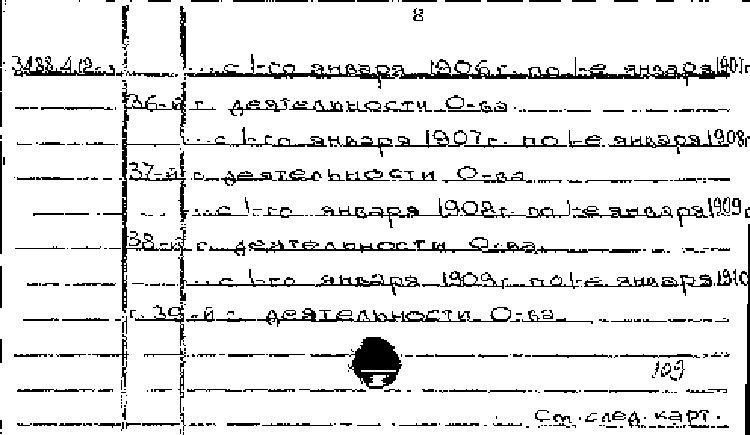 8
... с 1-го января 1906 г. по 1-е января 1907 г
36-й г. деятельности О-ва.
... с 1-го января 1907 г. по 1-е января 1908 г
37-й г. деятельности О-ва
... с 1-го января 1908 г. по 1-е января 1909 г
38-й г. деятельности О-ва.
... с 1-го января 1909 г. по 1-е января 1910
г. 39-й г. деятельности О-ва.
109
См. след. карт.